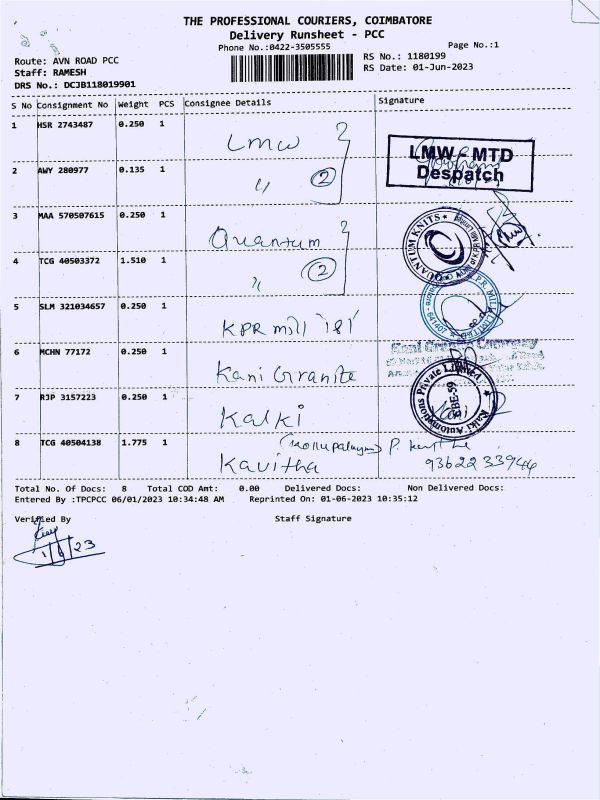 THE PROFESSIONAL COURIERS, COIMBATORE
Delivery Runsheet - PCC
Phone No.:0422-3505555
Page No.:1
Route: AVN ROAD PCC
RS No.: 1180199
Staff: RAMESH
RS Date: 01-Jun-2023
DRS No.: DCJB118019901
S No Consignment No Weight PCS Consignee Details Signature
1 HSR 2743487 0.250 1 LMW
LMW - MTD
Despatch
2 AWY 280977 0.135 1 〃 2
3 MAA 570507615 0.250 1 Quantum
QUANTUM KNITS
4 TCG 40503372 1.510 1 〃 2
5 SLM 321034657 0.250 1 KPR mill 181
641407
6 MCHN 77172 0.250 1 Kani Granite
Kani Granite Company
7 RJP 3157223 0.250 1 Kalki
Kalki Automations Private Limited
CBE-59
8 TCG 40504138 1.775 1 Kavitha
93622 33944
Total No. Of Docs: 8 Total COD Amt: 0.00 Delivered Docs: Non Delivered Docs:
Entered By :TPCPCC 06/01/2023 10:34:48 AM Reprinted On: 01-06-2023 10:35:12
Verified By Staff Signature
1/6/23